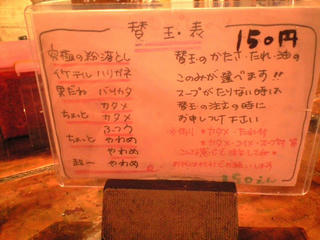 替玉表
150円
究極の粉落とし
イケテル ハリガネ
バリカタ
ちょっと カタメ
ふつう
ちょっと やわめ
やわめ
替玉のかたさ・たれ・油の
このみが選べます!!
スープがたりない時は
替玉の注文の時に
お申しつけ下さい
カタメ・たれ付
カタメ・コイメ・スープ付